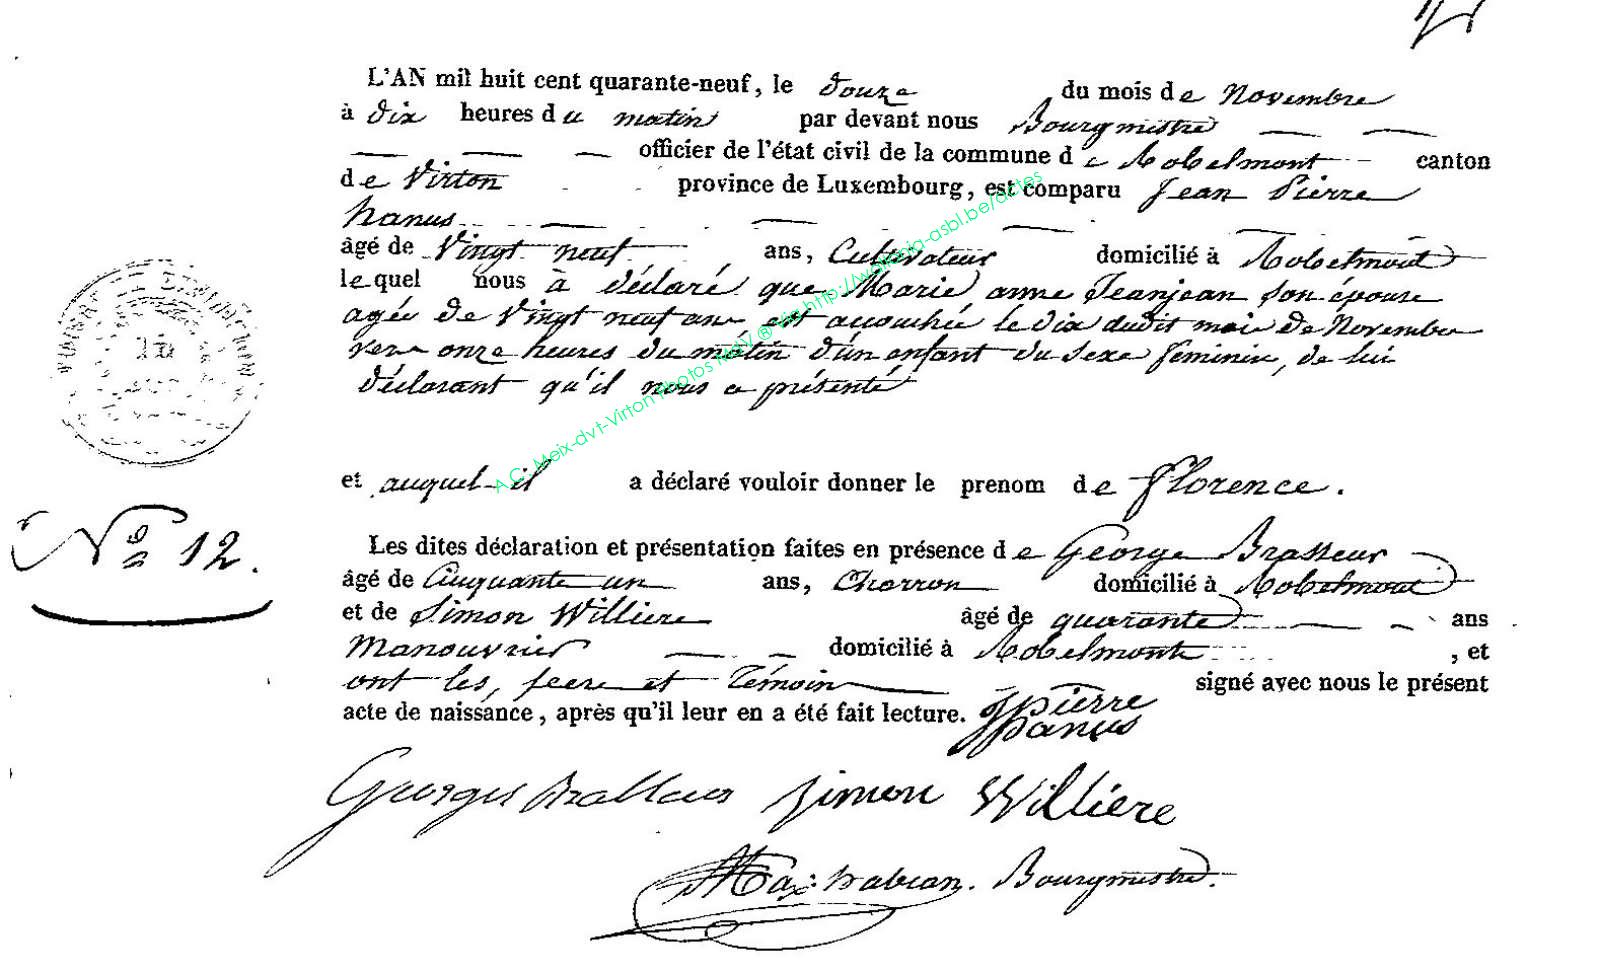 L'AN mil huit cent quarante-neuf, le douze du mois de Novembre
à dix heures du matin par devant nous Bourgmistre
officier de l'état civil de la commune de Robelmont canton
de Virton province de Luxembourg, est comparu Jean Pierre
hanus
âgé de Vingt neuf ans, Cultivateur domicilié à Robelmont
lequel nous à déclaré que Marie anne Jeanjean son épouse
agée de Vingt neuf ans est accouchée le dix dudit mois de Novembre
vers onze heures du matin d'un enfant du sexe féminin, de lui
déclarant qu'il nous a présenté
et auquel il a déclaré vouloir donner le prenom de Florence.
No 12.
Les dites déclaration et présentation faites en présence de George Brasseur
âgé de Cinquante un ans, Charron domicilié à Robelmont
et de Simon Williere âgé de quarante ans
Manouvrier domicilié à Robelmont, et
ont les, peere et Témoin signé avec nous le présent
acte de naissance, après qu'il leur en a été fait lecture. J pierre
hanus
Georges Brasseur Simon Williere
Bourgmistre.
A.C. Meix-dvt-Virton Photos MdV ® Vig http://wallonia-asbl.be/actes